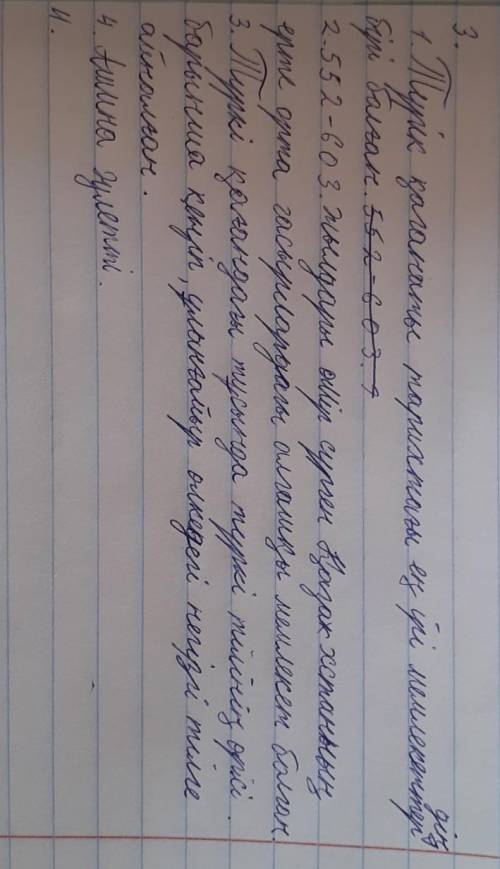 3.
1. Түрік қағанаты тарихтағы ең ірі мемлекеттердің
бірі болған. 552-603.
2. 552-603. жылдары өмір сүрген Қазақхстанның
ерте орта ғасырлардағы алғашқы мемлекет болған.
3. Түркі қағандағы тұсында түркі тілінің өрісі
барынша кеңіп, ұланғайыр өлкедегі негізгі тілге
айналған.
4. Ашина әулетті.
4.